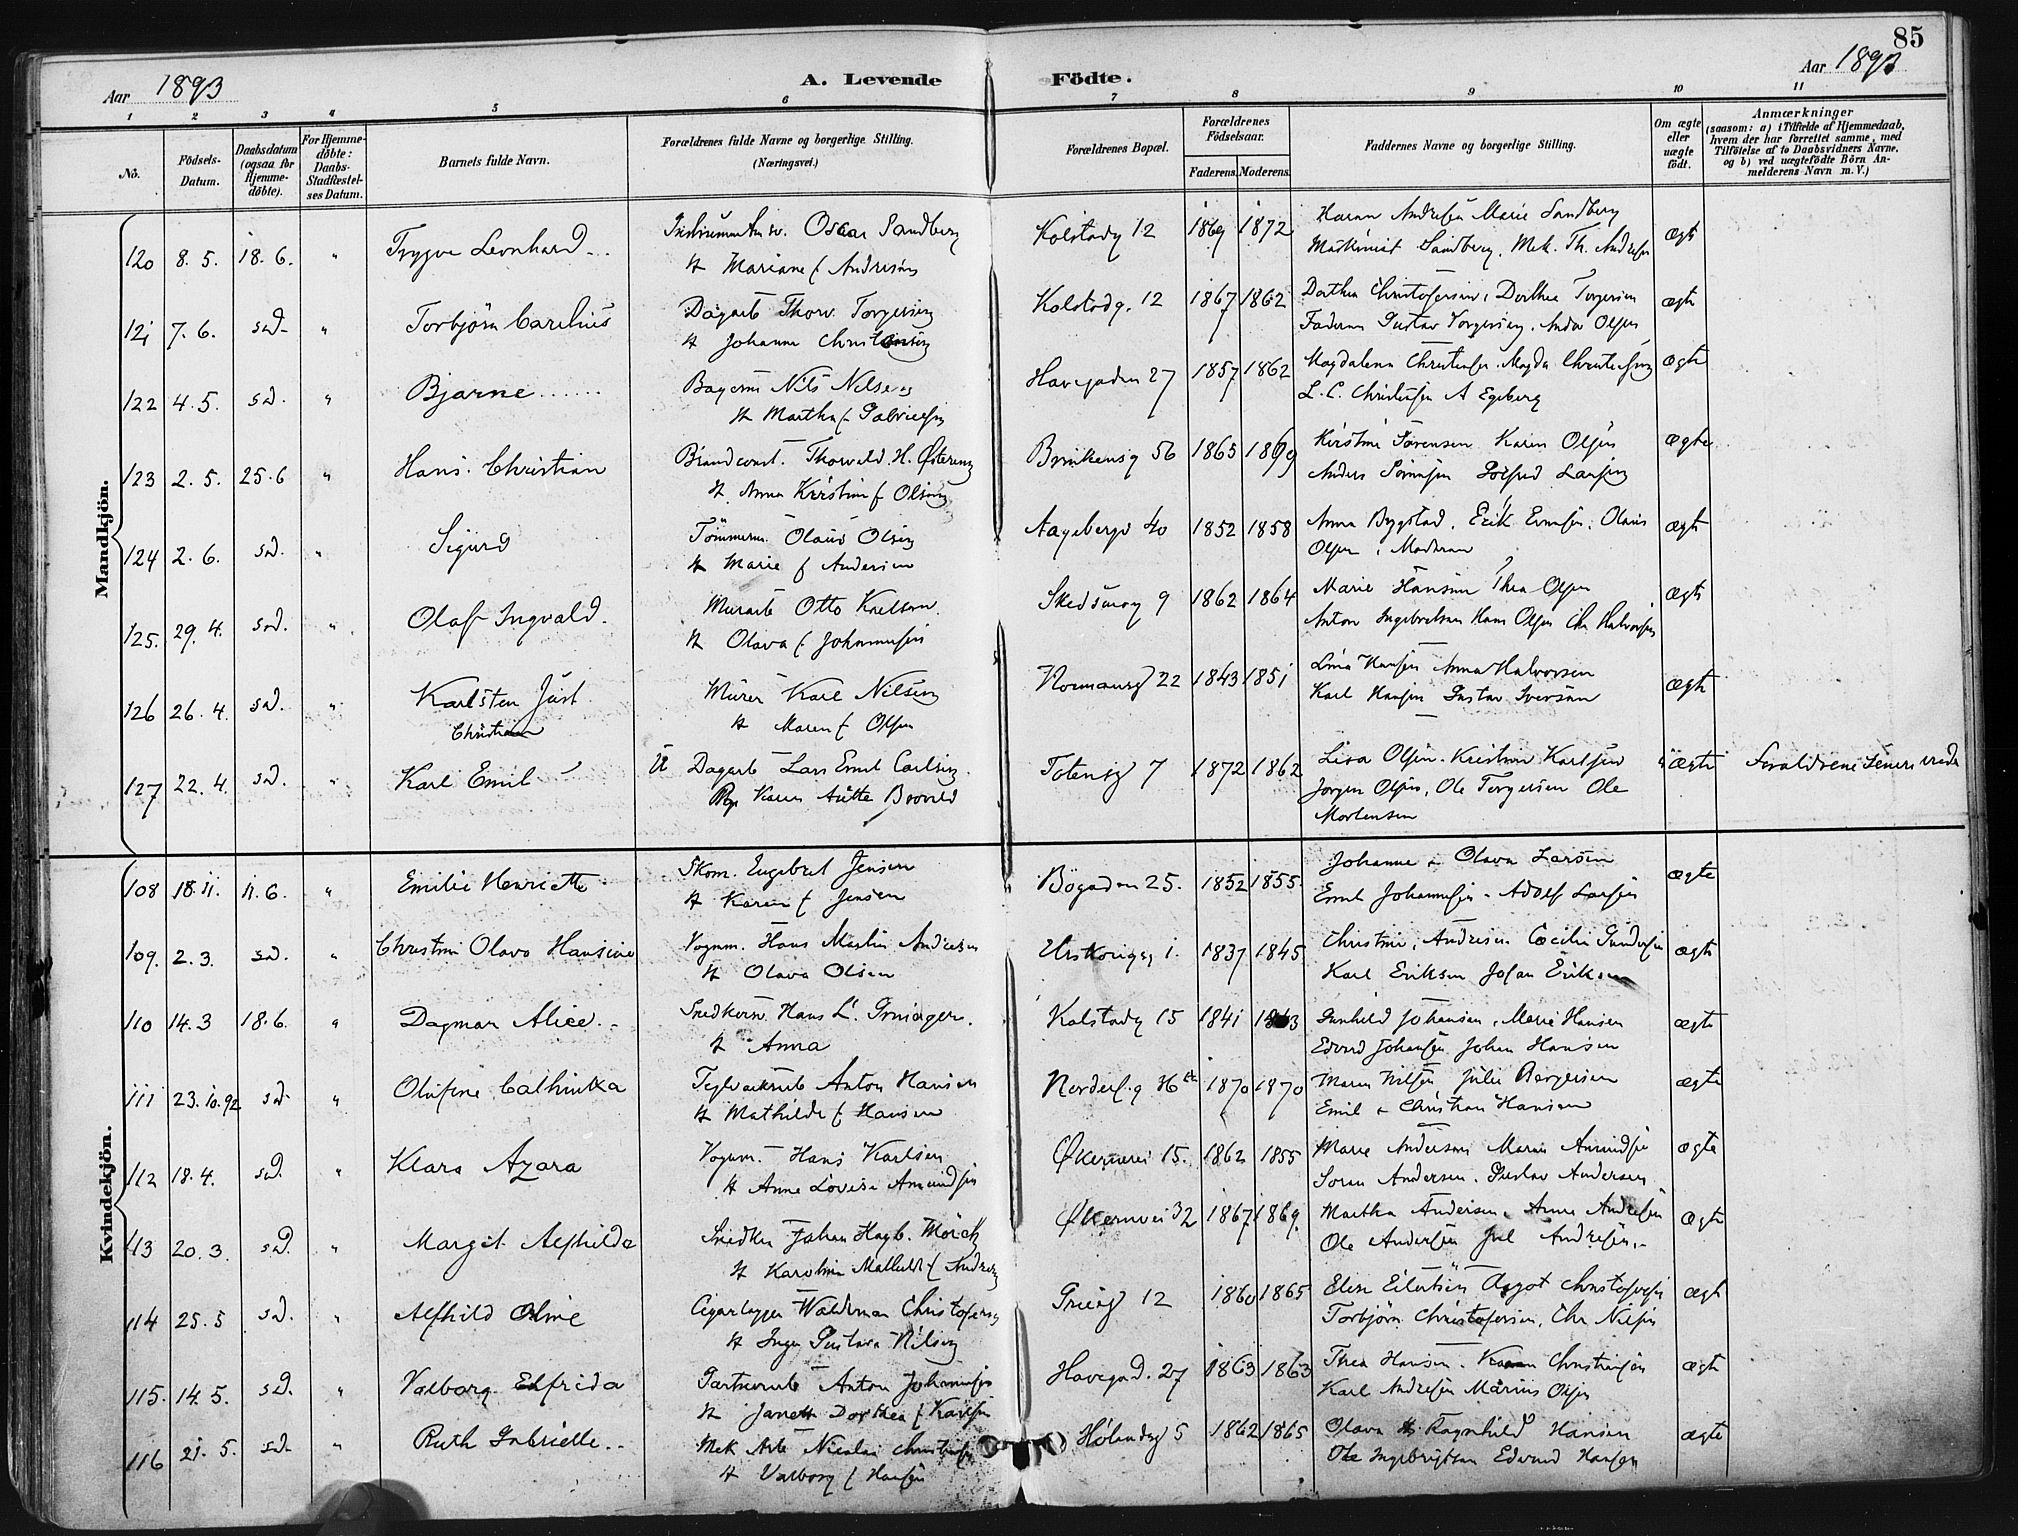 85
Aar 1893
A. Levende Födte.
Aar 1893
1 2 3 4 5 6 7 8 9 10 11
No.
Födsels-Datum.
Daabsdatum (ogsaa for Hjemme-döbte).
For Hjemme-döbte: Daabs-Stadfæstel-ses Datum.
Barnets fulde Navn.
Forældrenes fulde Navne og borgerlige Stilling.
(Næringsvei.)
Forældrenes Bopæl.
Forældrenes Födselsaar.
Faderens. Moderens.
Faddernes Navne og borgerlige Stilling.
Om ægte eller uægte födt.
Anmærkninger
(saasom: a) i Tilfælde af Hjemmedaab,
hvem der har forrettet samme, med
Tilföielse af to Daabsvidners Navne,
og b) ved uægtefödte Börn An-
melderens Navn m. V.)
Mandkjön.
120 8. 5. 18. 6. " Trygve Leonhard Oscar Sandberg Kolstadg 12 1869 1872 Marie Sandberg ægte
H Mariane f Andresen Maskinist Sandberg, Mek. Th. Andresen
121 7. 6. sd. " Torbjörn Dagarb Thorv. Torgersen Kolstadg. 12 1867 1862 Dorthea Christofersen, Dorthea Torgersen ægte
H Johanne Faderen Gustav Torgersen, Olsen
122 4. 5. sd. " Bjarne Nils Nilsen Havegaden 27 1857 1862 Magdalena Christensen, Magda Christensen ægte
H Martha f Gabrielsen L. C. Christensen A Egeberg
123 2. 5. 25. 6 " Hans Christian Brandconst. Thorvald H. 56 1865 Kirstine Sörensen Karen Olsen ægte
H Anna Kirstine f Olsen Anders Larsen
124 2. 6. sd. " Sigurd Tömmerm Olaus Olsen Aagebergv 40 1852 1858 Anna Bygstad, Erik Olaus ægte
H Marie f Andersen Olsen, Moderen
125. 29. 4. sd. " Olaf Ingvald. Murarb Otto Karlsen Skedsmog 9 1862 1864 Marie Hansen Thea Olsen ægte
H Olava f Johannesen Anton Ingebretsen Hans Olsen Chr Halvorsen
126 26. 4. sd. " Karlsten Just Murer Karl Nilsen Normansg 22 1843 1851 Lina Hansen Anna Halvorsen ægte
Christian H Maren f Olsen Karl Hansen Gustav Iversen
127 22. 4. sd. " Karl Emil U Dagarb Lars Emil Carlsen Totensg 7 1872 1862 Lisa Olsen. Kristine Karlsen uægte Forældrene senere viede
Pige Karen Jörgen Olsen, Ole Torgersen Ole
Mortensen
Kvindekjön.
108 18. 11. 11. 6. " Emilie Henriette Skom. Engebret Jensen Bögaden 25. 1852 1855. Johanne & Olava Larsen ægte
H Karen f Jensen Emil Johannesen. Adolf Larsen
109. 2. 3. sd. " Christine Olava Hansine Vognm. Hans Martin Andersen Urskougsg 1. 1837 1845 Christine Andresen Cæcilie Gundersen ægte
H Olava Olsen Karl Eriksen Johan Eriksen
110 14. 3 18. 6. " Dagmar Alice. Snedkersv. Hans L. Kolstadg 15 1841 Gunhild Johansen, Marie Hansen ægte
H Anna Edvard Johansen Johan Hansen
111 23. 10. 92 sd. " Olufine Cathinka Teglværksarb Anton Hansen Norderh.g 1870 1870 Maren Nilsen Julie Bergersen ægte
H Mathilde f Hansen Emil & Christian Hansen
112 18. 4. sd. " Klara Azora Vognm. Hans Karlsen Økernvei 15. 1862 1855 Marie Andersen Maren Amundsen ægte
H Anne Lovise Amundsen Soren Andersen. Gustav Andersen
113 20. 3. sd. " Margit Alfhilda Snedker Johan Hagb. Mörch Økernvei 32 1867 1869. Martha Andersen. Anne Andresen ægte
H Karoline Ole Andersen Juel Andresen
114 25. 5 sd. " Alfhild Oline Waldemar Christofersen 12 1860 1865 Elise Eilertsen Aagot Christofersen ægte
H Inga Gustava Nilsen Torbjörn Christofersen, Chr Nilsen
115. 14. 5. sd. " Valborg Elfrida Gartnerarb Anton Johannesen Havegad. 27 1863 1863 Thea Hansen. Karen Christensen ægte
H Janette Dorthea f Karlsen Karl Andresen Marius Olsen
116 21. 5. sd. " Ruth Gabrielle Mek Arb Nicolai Christensen Hölandsg 5 1862 1865 Olava Ragnhild Hansen ægte
H Valborg f Hansen Ole Ingebrigtsen Edvard Hansen